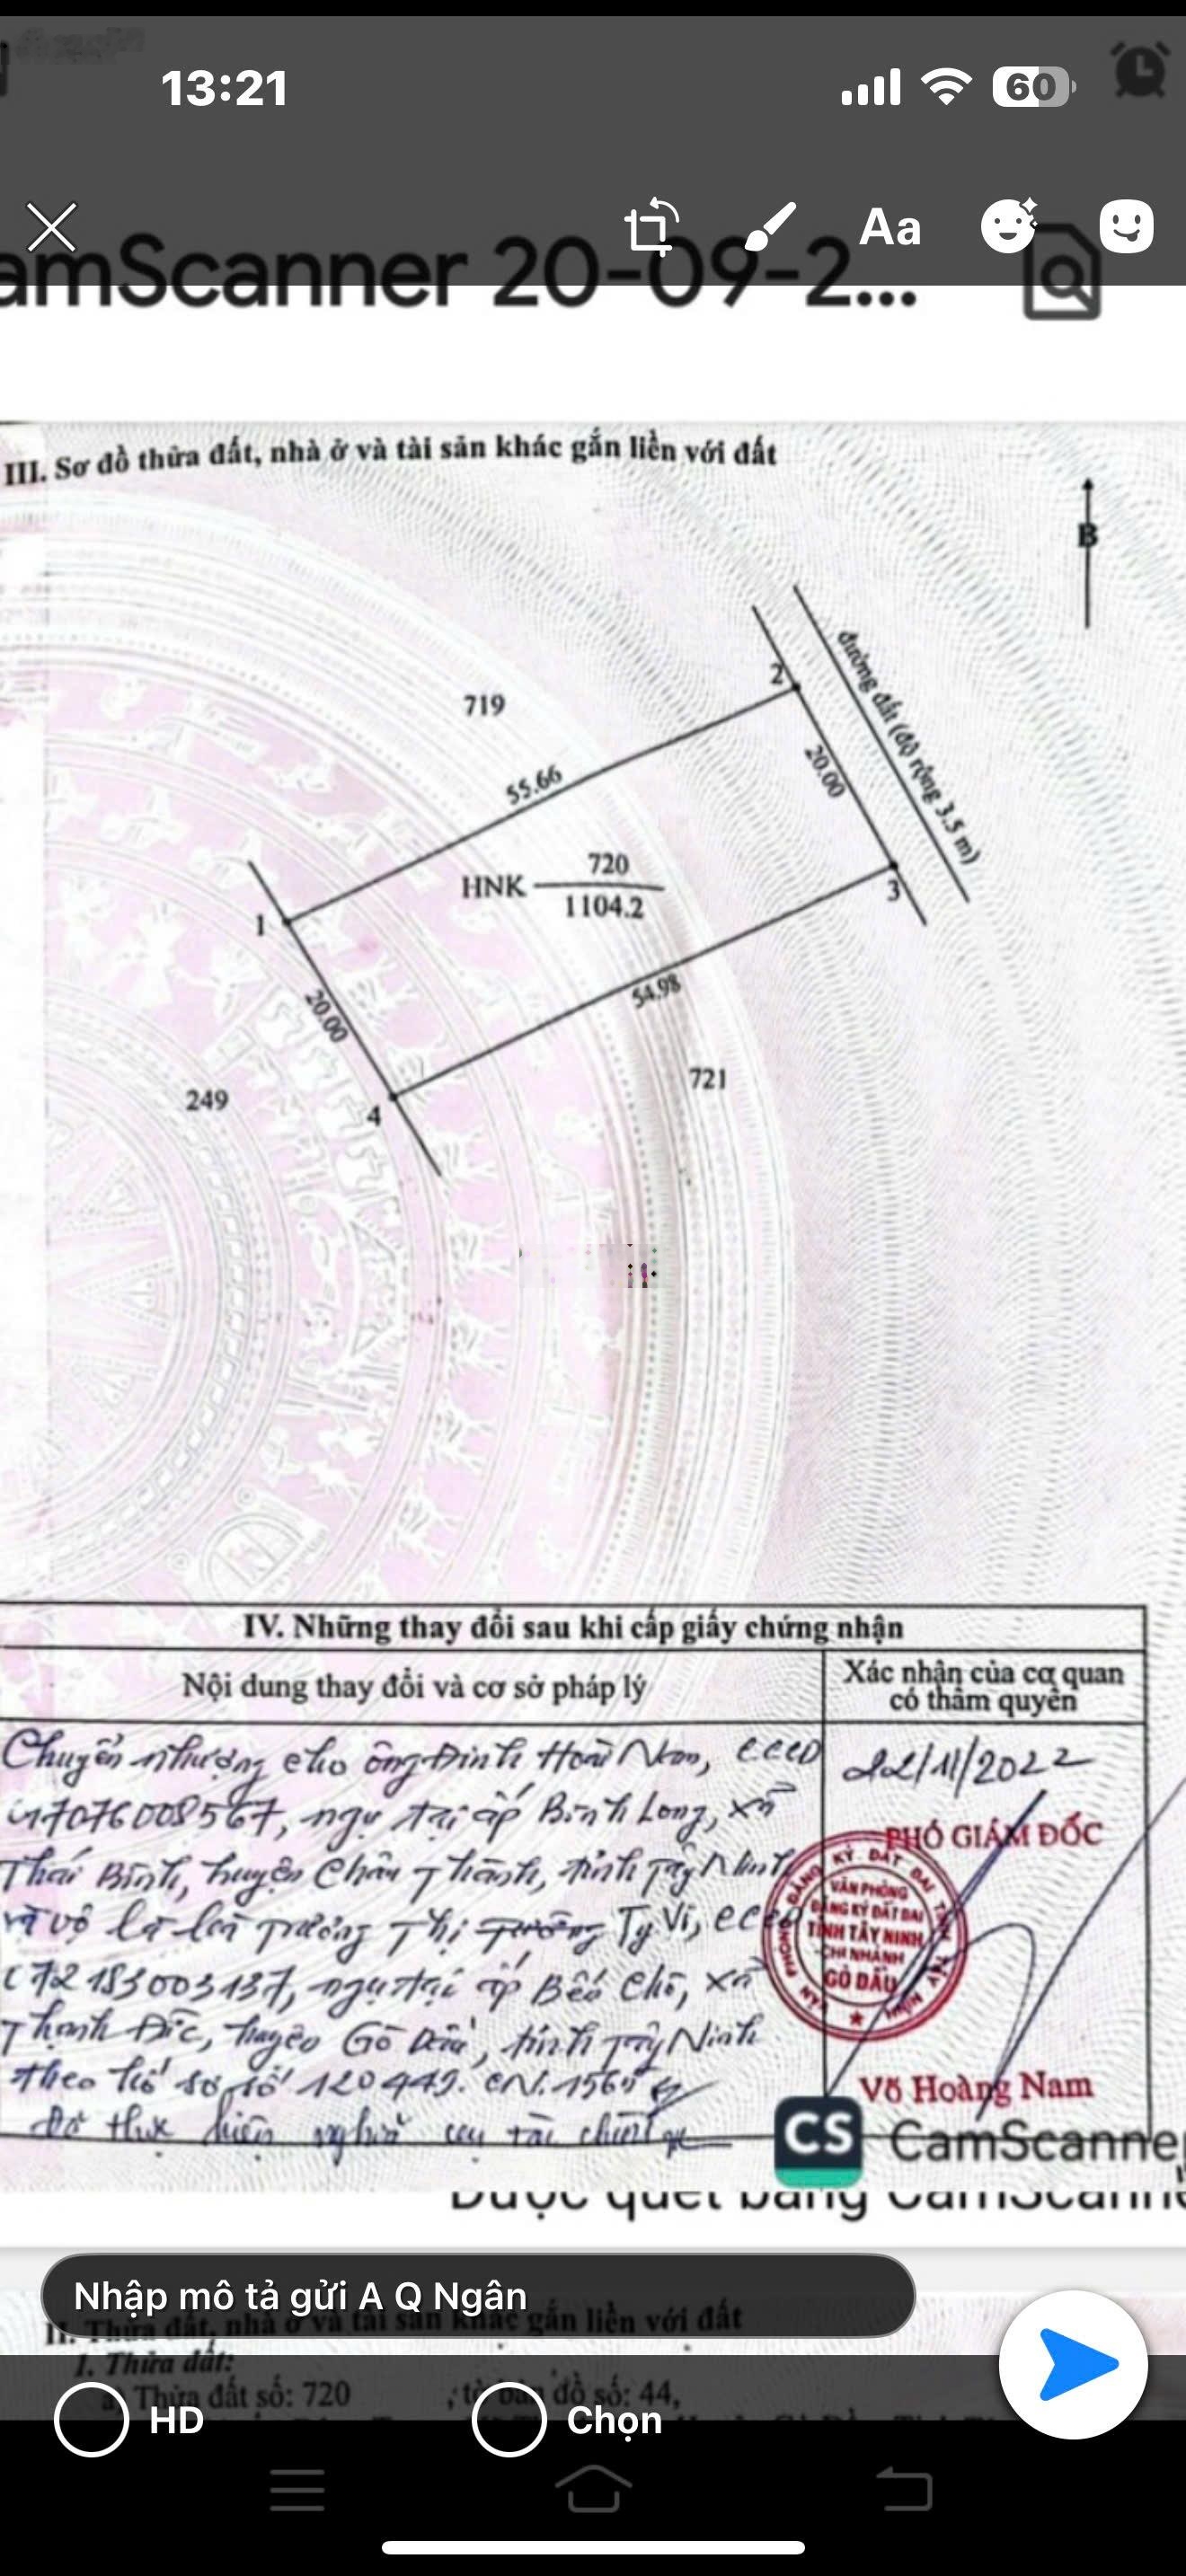 13:21
60
Aa
amScanner 20-09-2...
III. Sơ đồ thửa đất, nhà ở và tài sản khác gắn liền với đất
B
đường đất (độ rộng 3.5 m)
2
719
55.66
20.00
720
HNK
1104.2
3
1
54.98
20.00
721
249
4
IV. Những thay đổi sau khi cấp giấy chứng nhận
Nội dung thay đổi và cơ sở pháp lý
Xác nhận của cơ quan
có thẩm quyền
Chuyển nhượng cho ông Đinh Hoài CCCD
ngụ tại ấp Bình Long, xã
Thái Bình, huyện Châu Thành, tỉnh Tây Ninh
và vợ là bà Trương Thị Ty Vi, CCCD
ngụ tại ấp xã
Thạnh Đức, huyện Gò Dầu, tỉnh Tây Ninh
theo hồ sơ số 120449.
đã thực hiện nghĩa vụ tài chính
22/11/2022
PHÓ GIÁM ĐỐC
VĂN PHÒNG
ĐĂNG KÝ ĐẤT ĐAI
TỈNH TÂY NINH
CHI NHÁNH
GÒ DẦU
Võ Hoàng Nam
CS CamScanner
Được quét bằng CamScanne
Nhập mô tả gửi A Q Ngân
II. Thửa đất, nhà ở và tài sản khác gắn liền với đất
1. Thửa đất:
a) Thửa đất số: 720 , tờ bản đồ số: 44,
HD
Chọn